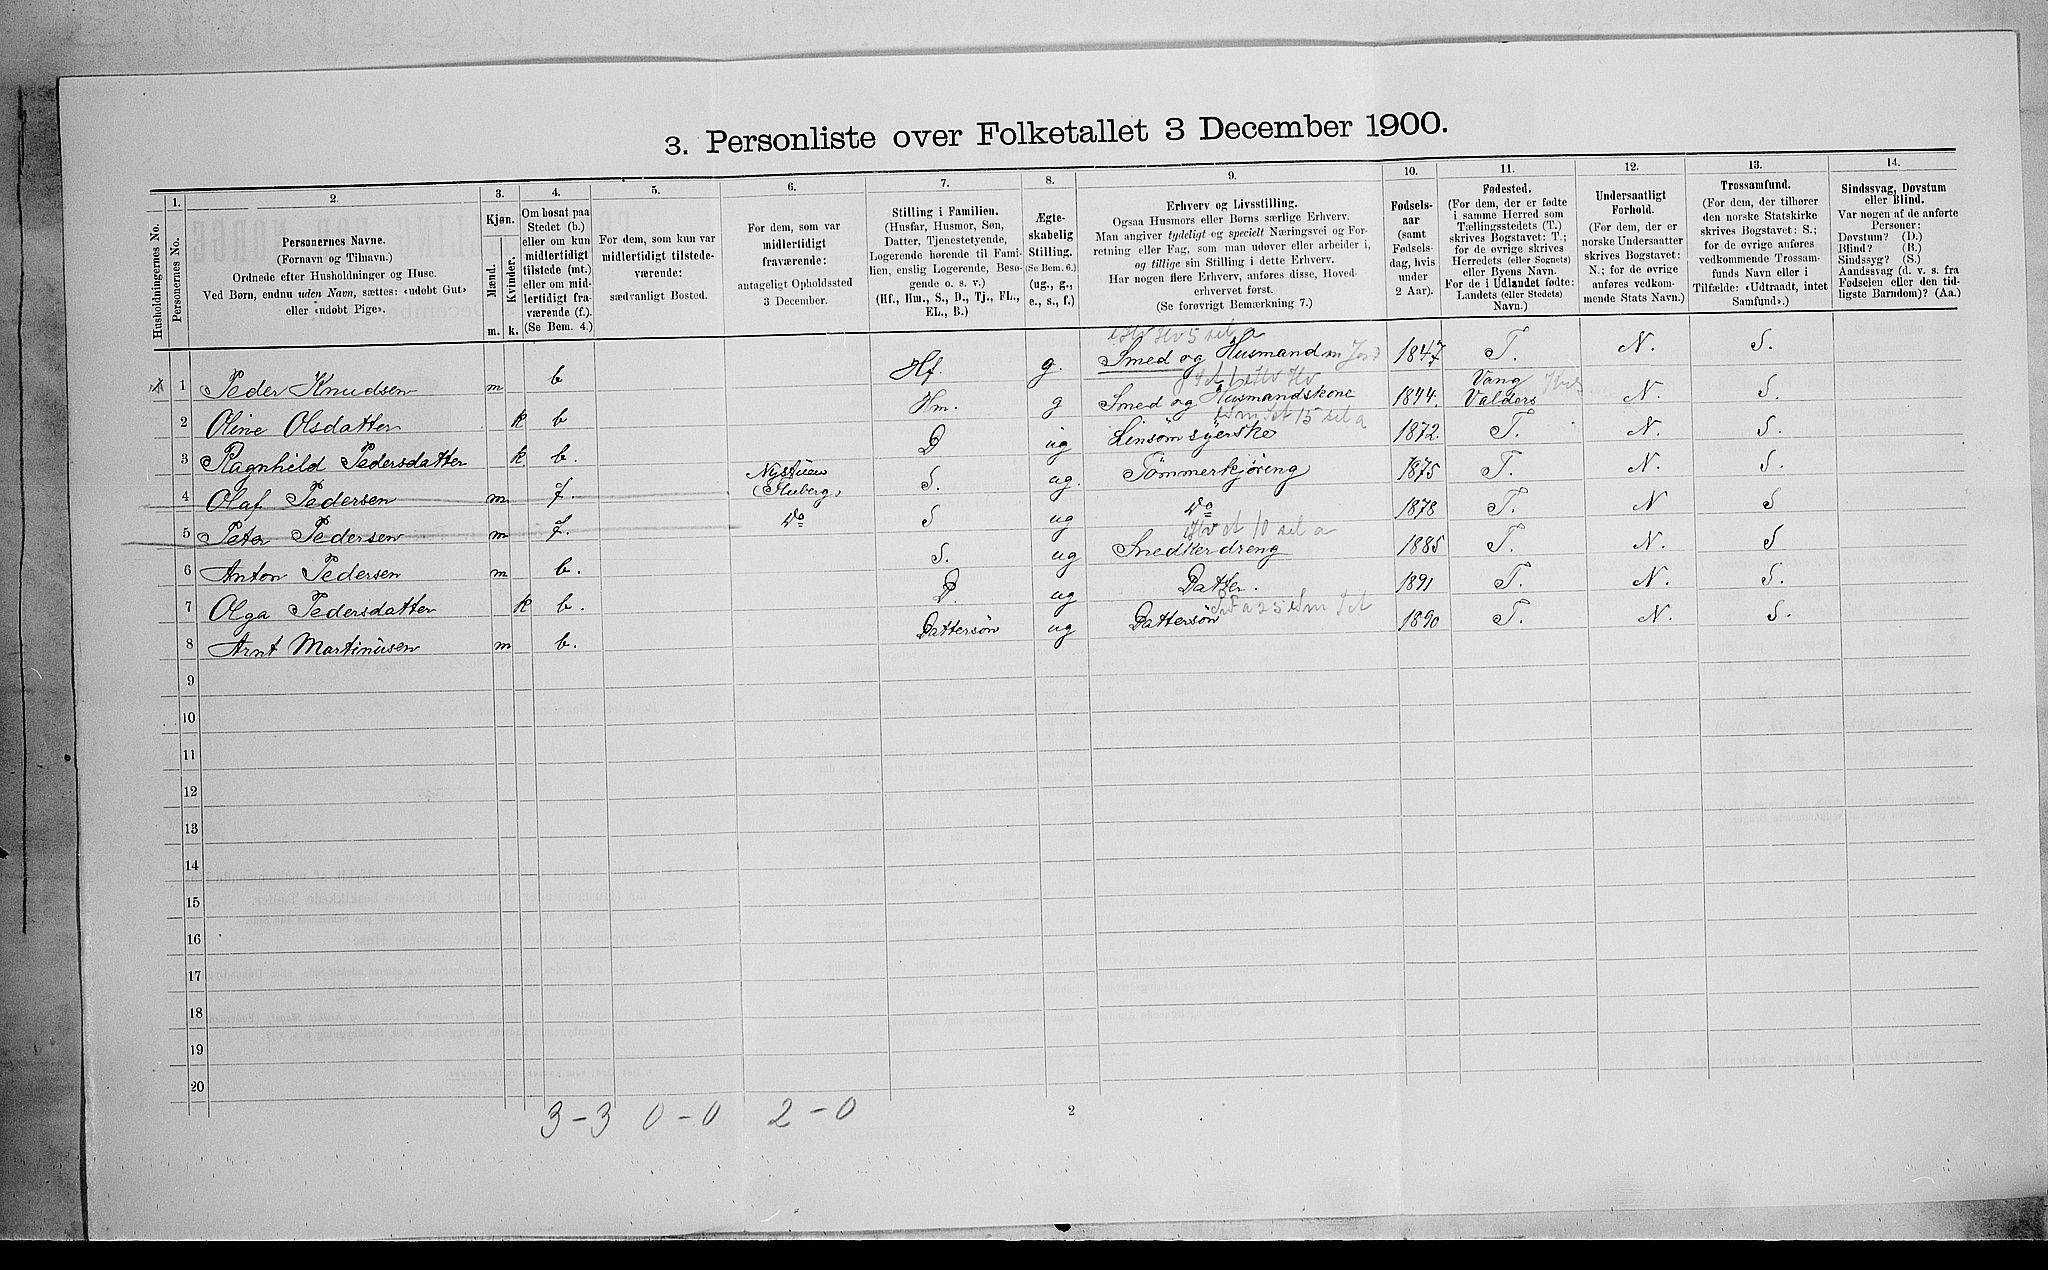 3. Personliste over Folketallet 3 December 1900.
Husholdningernes No.
1.
Personernes No.
2.
Personernes Navne.
(Fornavn og Tilnavn.)
Ordnede efter Husholdninger og Huse.
Ved Børn, endnu uden Navn, sættes: «udøbt Gut»
eller «udøbt Pige».
3.
Kjøn.
Mænd.
Kvinder.
m. k.
4.
Om bosat paa
Stedet (b.)
eller om kun
midlertidigt
tilstede (mt.)
eller om mid-
lertidigt fra-
værende (f.).
(Se Bem. 4.)
5.
For dem, som kun var
midlertidigt tilstede-
værende:
sædvanligt Bosted.
6.
For dem, som var
midlertidigt
fraværende:
antageligt Opholdssted
3 December.
7.
Stilling i Familien.
(Husfar, Husmor, Søn,
Datter, Tjenestetyende,
Logerende hørende til Fami-
lien, enslig Logerende, Besø-
gende o. s. v.)
(Hf., Hm., S., D., Tj., FL.,
EL., B.)
8.
Ægte-
skabelig
Stilling.
(Se Bem. 6.)
(ug., g.,
e., s., f.)
9.
Erhverv og Livsstilling.
Ogsaa Husmors eller Børns særlige Erhverv.
Man angiver tydeligt og specielt Næringsvei og For-
retning eller Fag, som man udøver eller arbeider i,
og tillige sin Stilling i dette Erhverv.
Har nogen flere Erhverv, anføres disse, Hoved-
erhvervet først.
(Se forøvrigt Bemærkning 7.)
10.
Fødsels-
aar
(samt
Fødsels-
dag, hvis
under
2 Aar).
11.
Fødested.
(For dem, der er fødte
i samme Herred som
Tællingsstedets (T.)
skrives Bogstavet: T.;
for de øvrige skrives
Herredets (eller Sognets)
eller Byens Navn.
For de i Udlandet fødte:
Landets (eller Stedets)
Navn.)
12.
Undersaatligt
Forhold.
(For dem, der er
norske Undersaatter
skrives Bogstavet:
N.; for de øvrige
anføres vedkom-
mende Stats Navn.)
13.
Trossamfund.
(For dem, der tilhører
den norske Statskirke
skrives Bogstavet: S.;
for de øvrige anføres
vedkommende Trossam-
funds Navn eller i
Tilfælde: «Udtraadt, intet
Samfund».)
14.
Sindssvag, Døvstum
eller Blind.
Var nogen af de anførte
Personer:
Døvstum? (D.)
Blind? (B.)
Sindssyg? (S.)
Aandssvag (d. v. s. fra
Fødselen eller den tid-
ligste Barndom)? (Aa.)
1 Peder Knudsen m b Hf. g. Smed og Husmand m Jord 1847 T. N. S.
2 Oline Olsdatter k b Hm. g Smed og Husmandskone 1844. Vang Valders N. S.
3 Ragnhild Pedersdatter k b. D ug Linsömsyerske 1872. T. N. S.
4 Olaf Pedersen m f. Nystuen (Fluberg) S. ug. Tömmerkjöring 1875 T. N. S.
5 Peter Pedersen m f. Do S ug Do 1878 T. N S
6 Anton Pedersen m b. S. ug Smedkerdreng 1885 T. N. S
7 Olga Pedersdatter k b. D. ug Datter. 1891 T. N. S.
8 Arnt Martinusen m b. Dattersön ug Dattersön 1890 T. N. S.
9
10
11
12
13
14
15
16
17
18
19
20
3-3 0-0 2-0
2